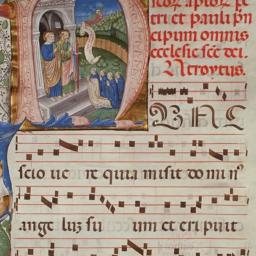 apłoꝝ pe
tri et pauli pn
cipum omnis
ecclesie scē dei.
Nunc
scio ue re quia misit do mi nꝰ
ange luꝫ su um et eri puit